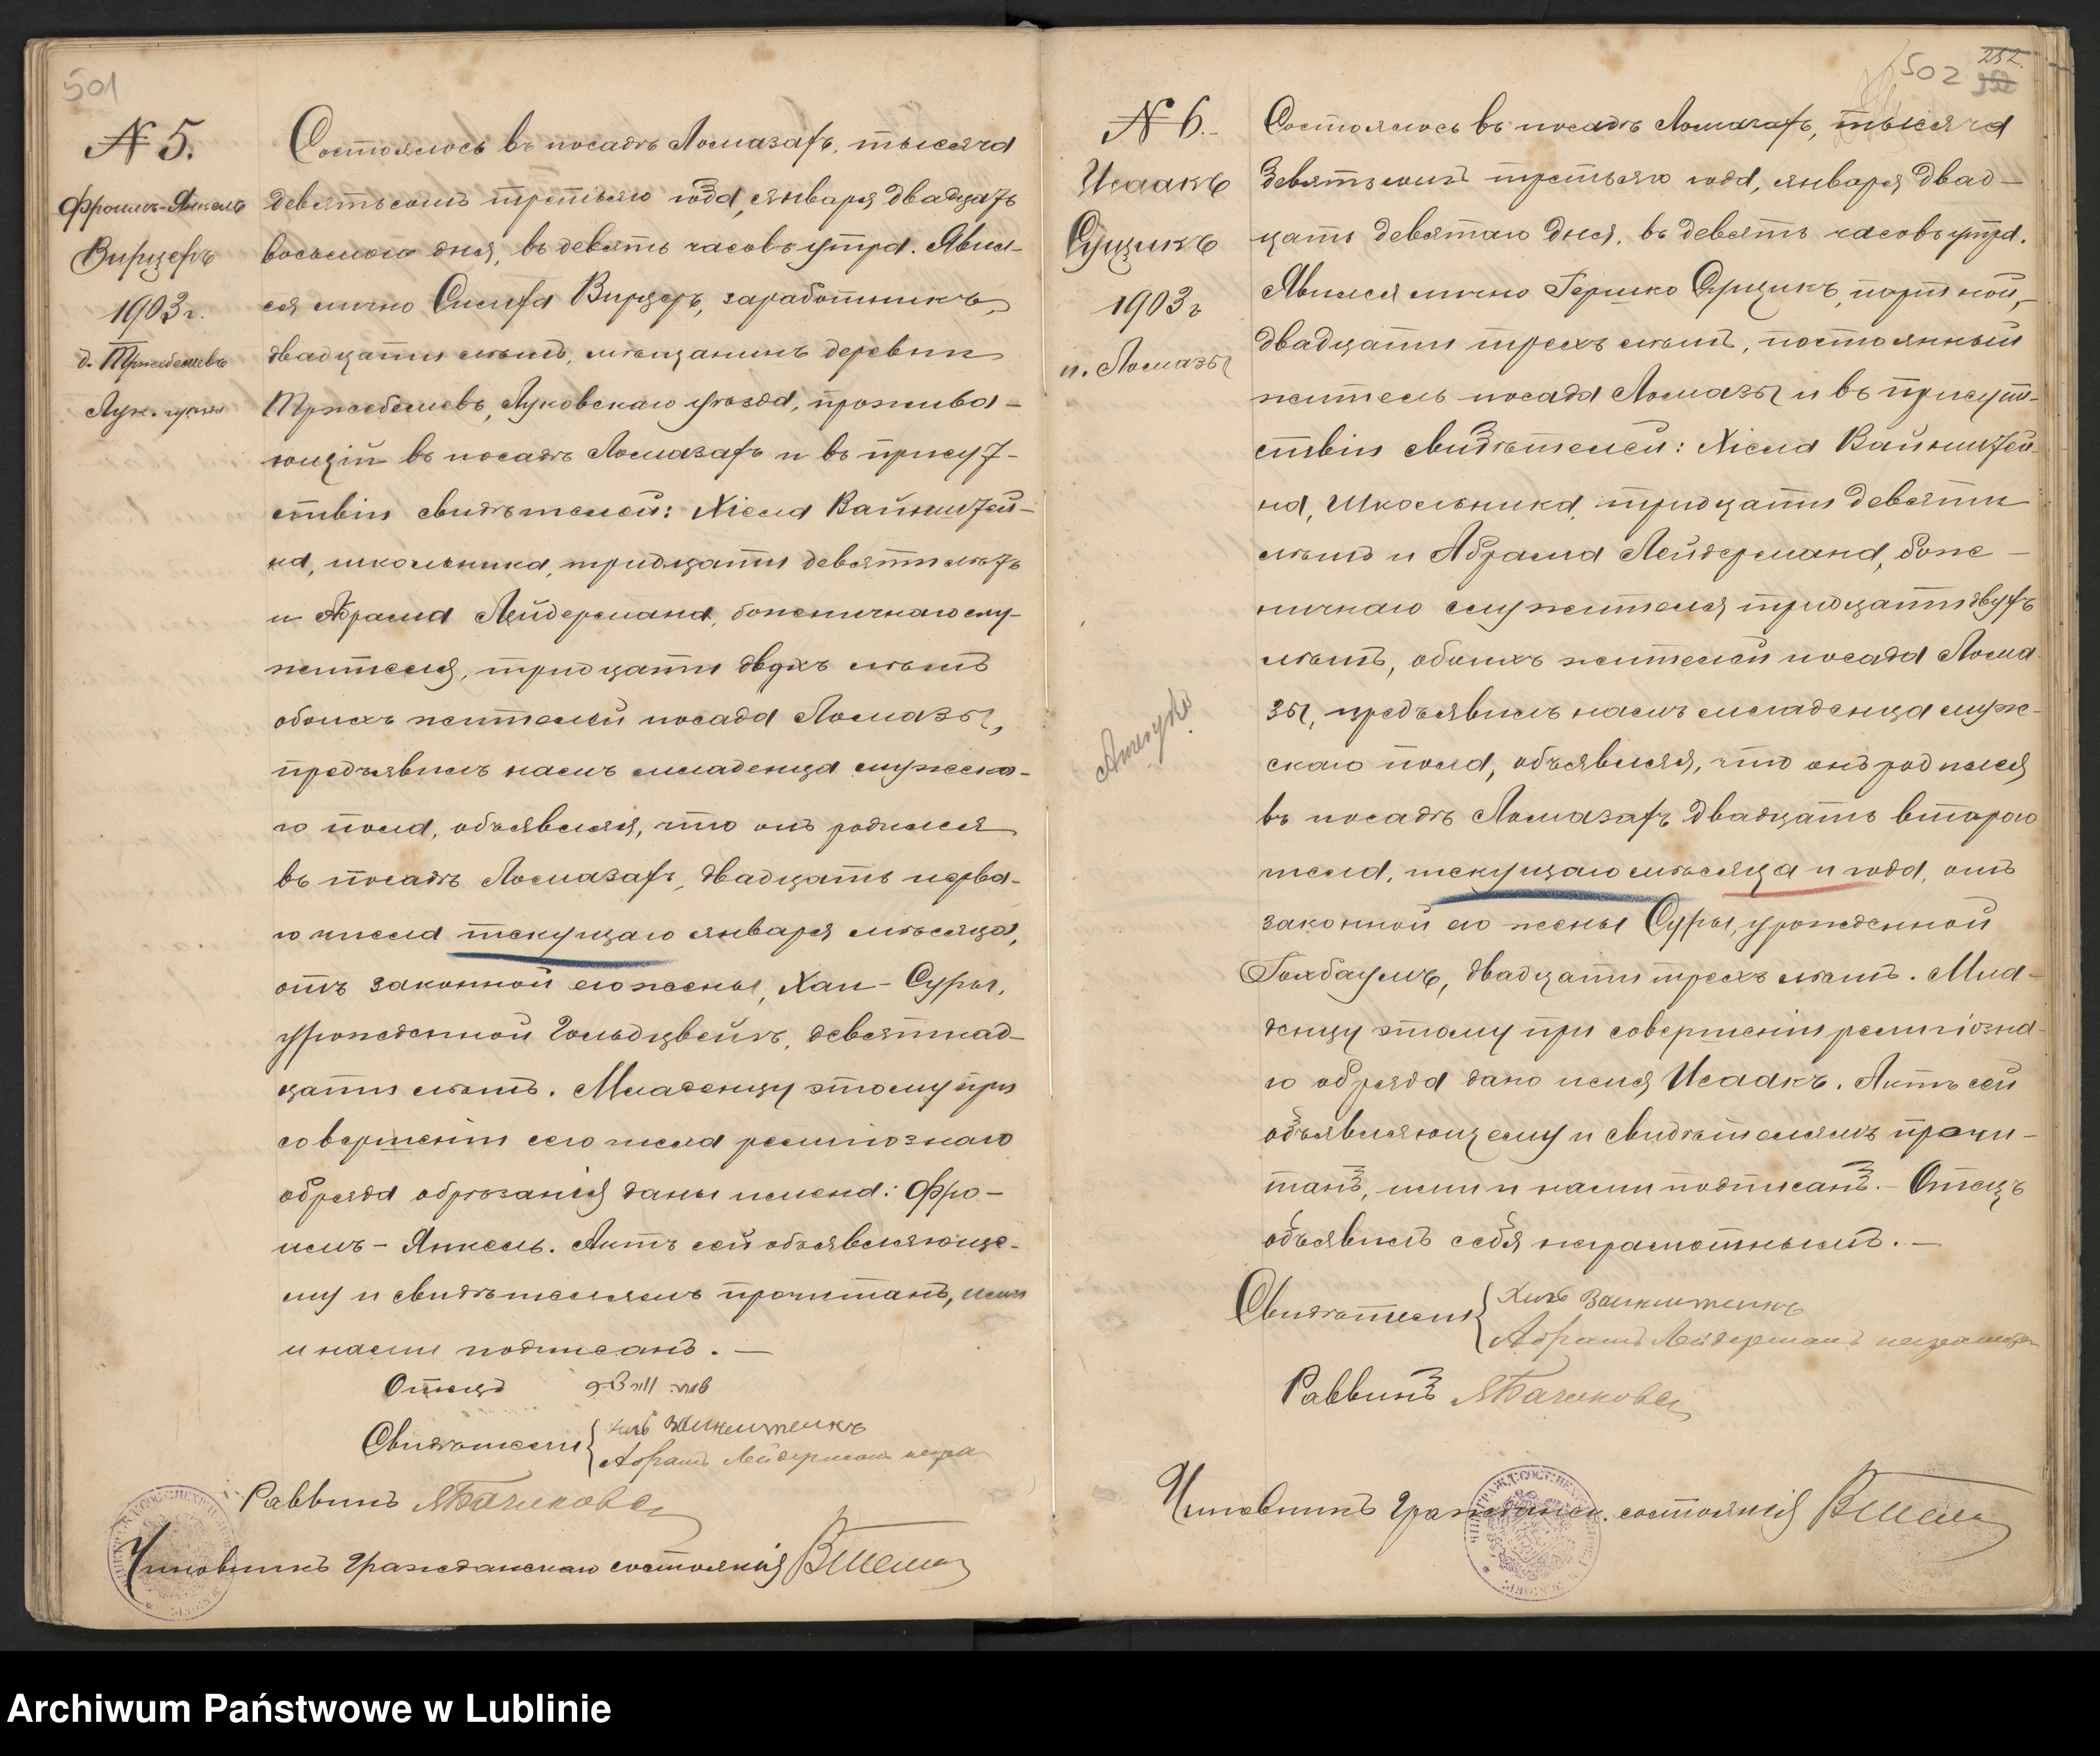 501
№ 5.
Фроимъ-Янкель
Вирцеръ
1903 г.
д. Тржебешевъ
Лук. уѣзда
Состоялось въ посадѣ Ломазахъ, тысяча
девятьсотъ третьяго года, января двадцать
восьмого дня, въ девять часовъ утра. Явил-
ся лично Сисифа Вирцеръ, заработникъ,
двадцати лѣтъ, мѣщанинъ деревни
Тржебешевъ, Луковскаго уѣзда, прожива-
ющій въ посадѣ Ломазахъ и въ присут-
ствіи свидѣтелей: Хіела Вайнштей-
на, школьника, тридцати девяти лѣтъ
и Абрама Лейдермана, божничнаго слу-
жителя, тридцати двухъ лѣтъ
обоихъ жителей посада Ломазы,
предъявилъ намъ младенца мужеска-
го пола, объявляя, что онъ родился
въ посадѣ Ломазахъ, двадцать перва-
го числа текущаго января мѣсяца,
отъ законной его жены, Хаи-Суры,
урожденной Гольдцвейгъ, девятнад-
цати лѣтъ. Младенцу этому при
совершеніи сего числа религіознаго
обряда обрѣзанія даны имена: Фро-
имъ-Янкель. Актъ сей объявляюще-
му и свидѣтелямъ прочитанъ, ими
и нами подписанъ. —
Отецъ
Свидѣтели { Хилъ Вайнштейнъ
Абрамъ Лейдерманъ
Раввинъ
Чиновникъ Гражданскаго состоянія
502 252.
№ 6.
Исаакъ
Сущикъ
1903 г
п. Ломазы
Состоялось въ посадѣ Ломазахъ, тысяча
девятьсотъ третьяго года, января двад-
цать девятаго дня, въ девять часовъ утра.
Явился лично Гершко Сущикъ, портной,
двадцати трехъ лѣтъ, постоянный
житель посада Ломазы и въ присут-
ствіи свидѣтелей: Хіела Вайнштей-
на, Школьника, тридцати девяти
лѣтъ и Абрама Лейдермана, бож-
ничнаго служителя тридцати двухъ
лѣтъ, обоихъ жителей посада Лома-
зы, предъявилъ намъ младенца муже-
скаго пола, объявляя, что онъ родился
въ посадѣ Ломазахъ двадцать второго
числа, текущаго мѣсяца и года, отъ
законной его жены Суры, урожденной
Гохбаумъ, двадцати трехъ лѣтъ. Мла-
денцу этому при совершеніи религіозна-
го обряда дано имя Исаакъ. Актъ сей
объявляющему и свидѣтелямъ прочи-
танъ, ими и нами подписанъ.- Отецъ
объявилъ себя неграмотнымъ. —
Свидѣтели { Хилъ Вайнштейнъ
Абрамъ Лейдерманъ
Раввинъ
Чиновникъ Гражданск. состоянія
Archiwum Państwowe w Lublinie